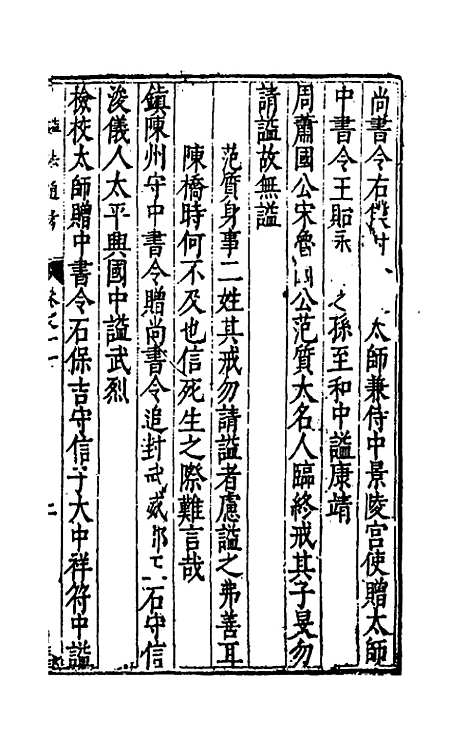 尚書令右 太師兼侍中景陵宮使贈太師
中書令王貽永 之孫至和中謚康靖
周蕭國公宋魯國公范質大名人臨終戒其子旻勿
請謚故無謚
范質身事二姓其戒勿請謚者慮謚之弗善耳
陳橋時何不及也信死生之際難言哉
鎮陳州守中書令贈尚書令追封武威郡王石守信
浚儀人太平興國中謚武烈
檢校太師贈中書令石保吉守信子大中祥符中謚
謚法通考 卷之十一 二